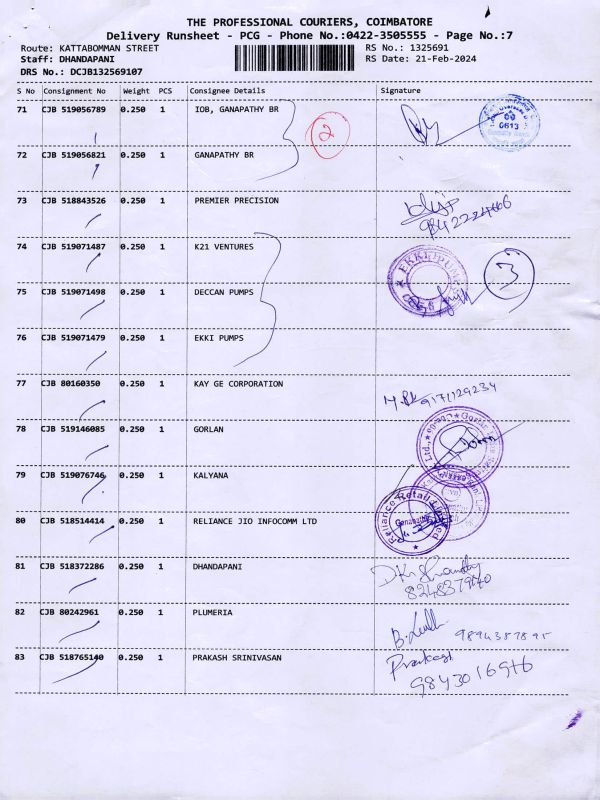 THE PROFESSIONAL COURIERS, COIMBATORE
Delivery Runsheet - PCG - Phone No.:0422-3505555 - Page No.:7
Route: KATTABOMMAN STREET RS No.: 1325691
Staff: DHANDAPANI RS Date: 21-Feb-2024
DRS No.: DCJB132569107
S No Consignment No Weight PCS Consignee Details Signature
71 CJB 519056789 0.250 1 IOB, GANAPATHY BR 2 0613
72 CJB 519056821 0.250 1 GANAPATHY BR
73 CJB 518843526 0.250 1 PREMIER PRECISION
74 CJB 519071487 0.250 1 K21 VENTURES 3
75 CJB 519071498 0.250 1 DECCAN PUMPS
76 CJB 519071479 0.250 1 EKKI PUMPS
77 CJB 80160350 0.250 1 KAY GE CORPORATION 9171129234
78 CJB 519146085 0.250 1 GORLAN
79 CJB 519076746 0.250 1 KALYANA
80 CJB 518514414 0.250 1 RELIANCE JIO INFOCOMM LTD Reliance Retail
81 CJB 518372286 0.250 1 DHANDAPANI
82 CJB 80242961 0.250 1 PLUMERIA
83 CJB 518765140 0.250 1 PRAKASH SRINIVASAN
9843016916